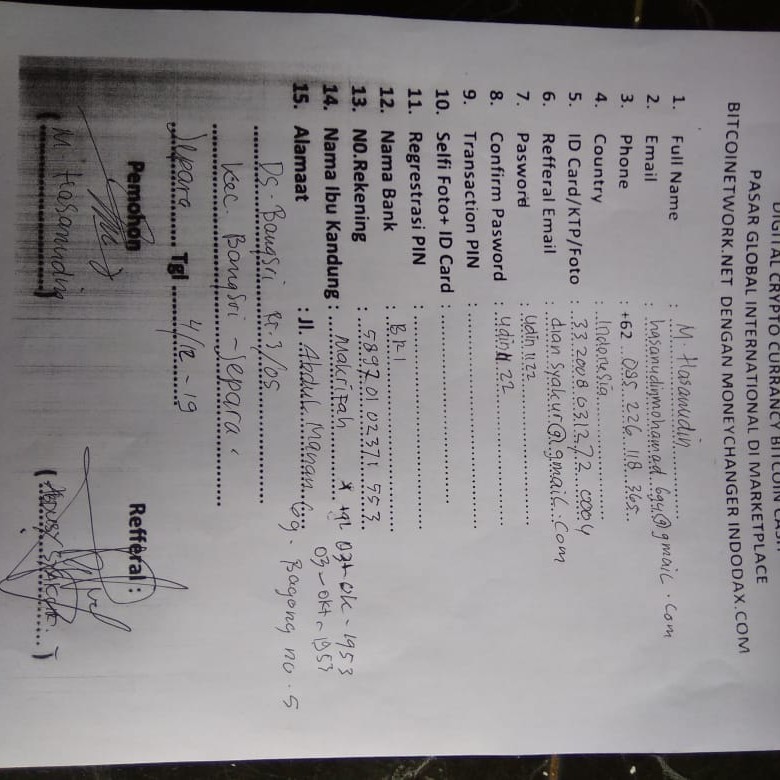 DIGITAL CRYPTO CURRANCY BITCOIN CASH
PASAR GLOBAL INTERNATIONAL DI MARKETPLACE
BITCOINETWORK.NET DENGAN MONEYCHANGER INDODAX.COM
1. Full Name : M. Hasanudin
2. Email : hasanudinmohamad694@gmail.com
3. Phone : +62 085 226 118 365
4. Country : Indonesia
5. ID Card/KTP/Foto : 33 2008 031272 0004
6. Refferal Email : dian syakur@gmail.com
7. Pasword : Udin1122
8. Confirm Pasword : Udin1122
9. Transaction PIN :
10. Selfi Foto+ ID Card :
11. Regrestrasi PIN :
12. Nama Bank : BRI
13. NO.Rekening : 5897 01 02371 553
14. Nama Ibu Kandung : Makrifah * tgl 03-ok-1953
03-okt-1953
15. Alamaat : Jl. Abdul Manan Gg. Bagong no. 5
Ds. Bangsri Rt 3/05
Kec. Bangsri - Jepara
Jepara Tgl 4/12-19
Pemohon Refferal :
( M. Hasanudin ) ( )